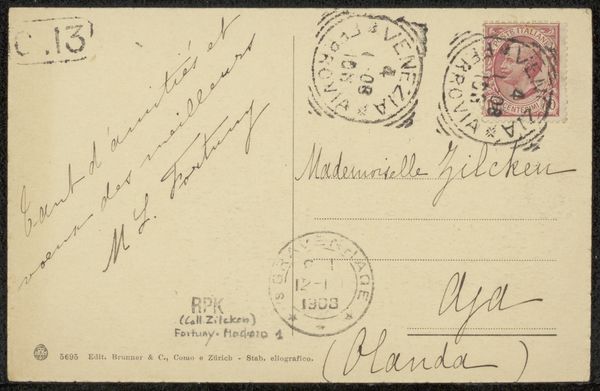 C.13
VENEZIA
FERROVIA
4
08
VENEZIA
FERROVIA
4
08
POSTE ITALIANE
CENTESIMI
Tant d'amitiés et
voeux des meilleurs
M L. Fortuny
Mademoiselle Zilcken
Aja
(Olanda)
'SGRAVENHAGE
1908
RPK
(Coll. Zilcken)
Fortuny-Madrazo 1
5695 Edit. Brunner & C., Como e Zürich - Stab. eliografico.